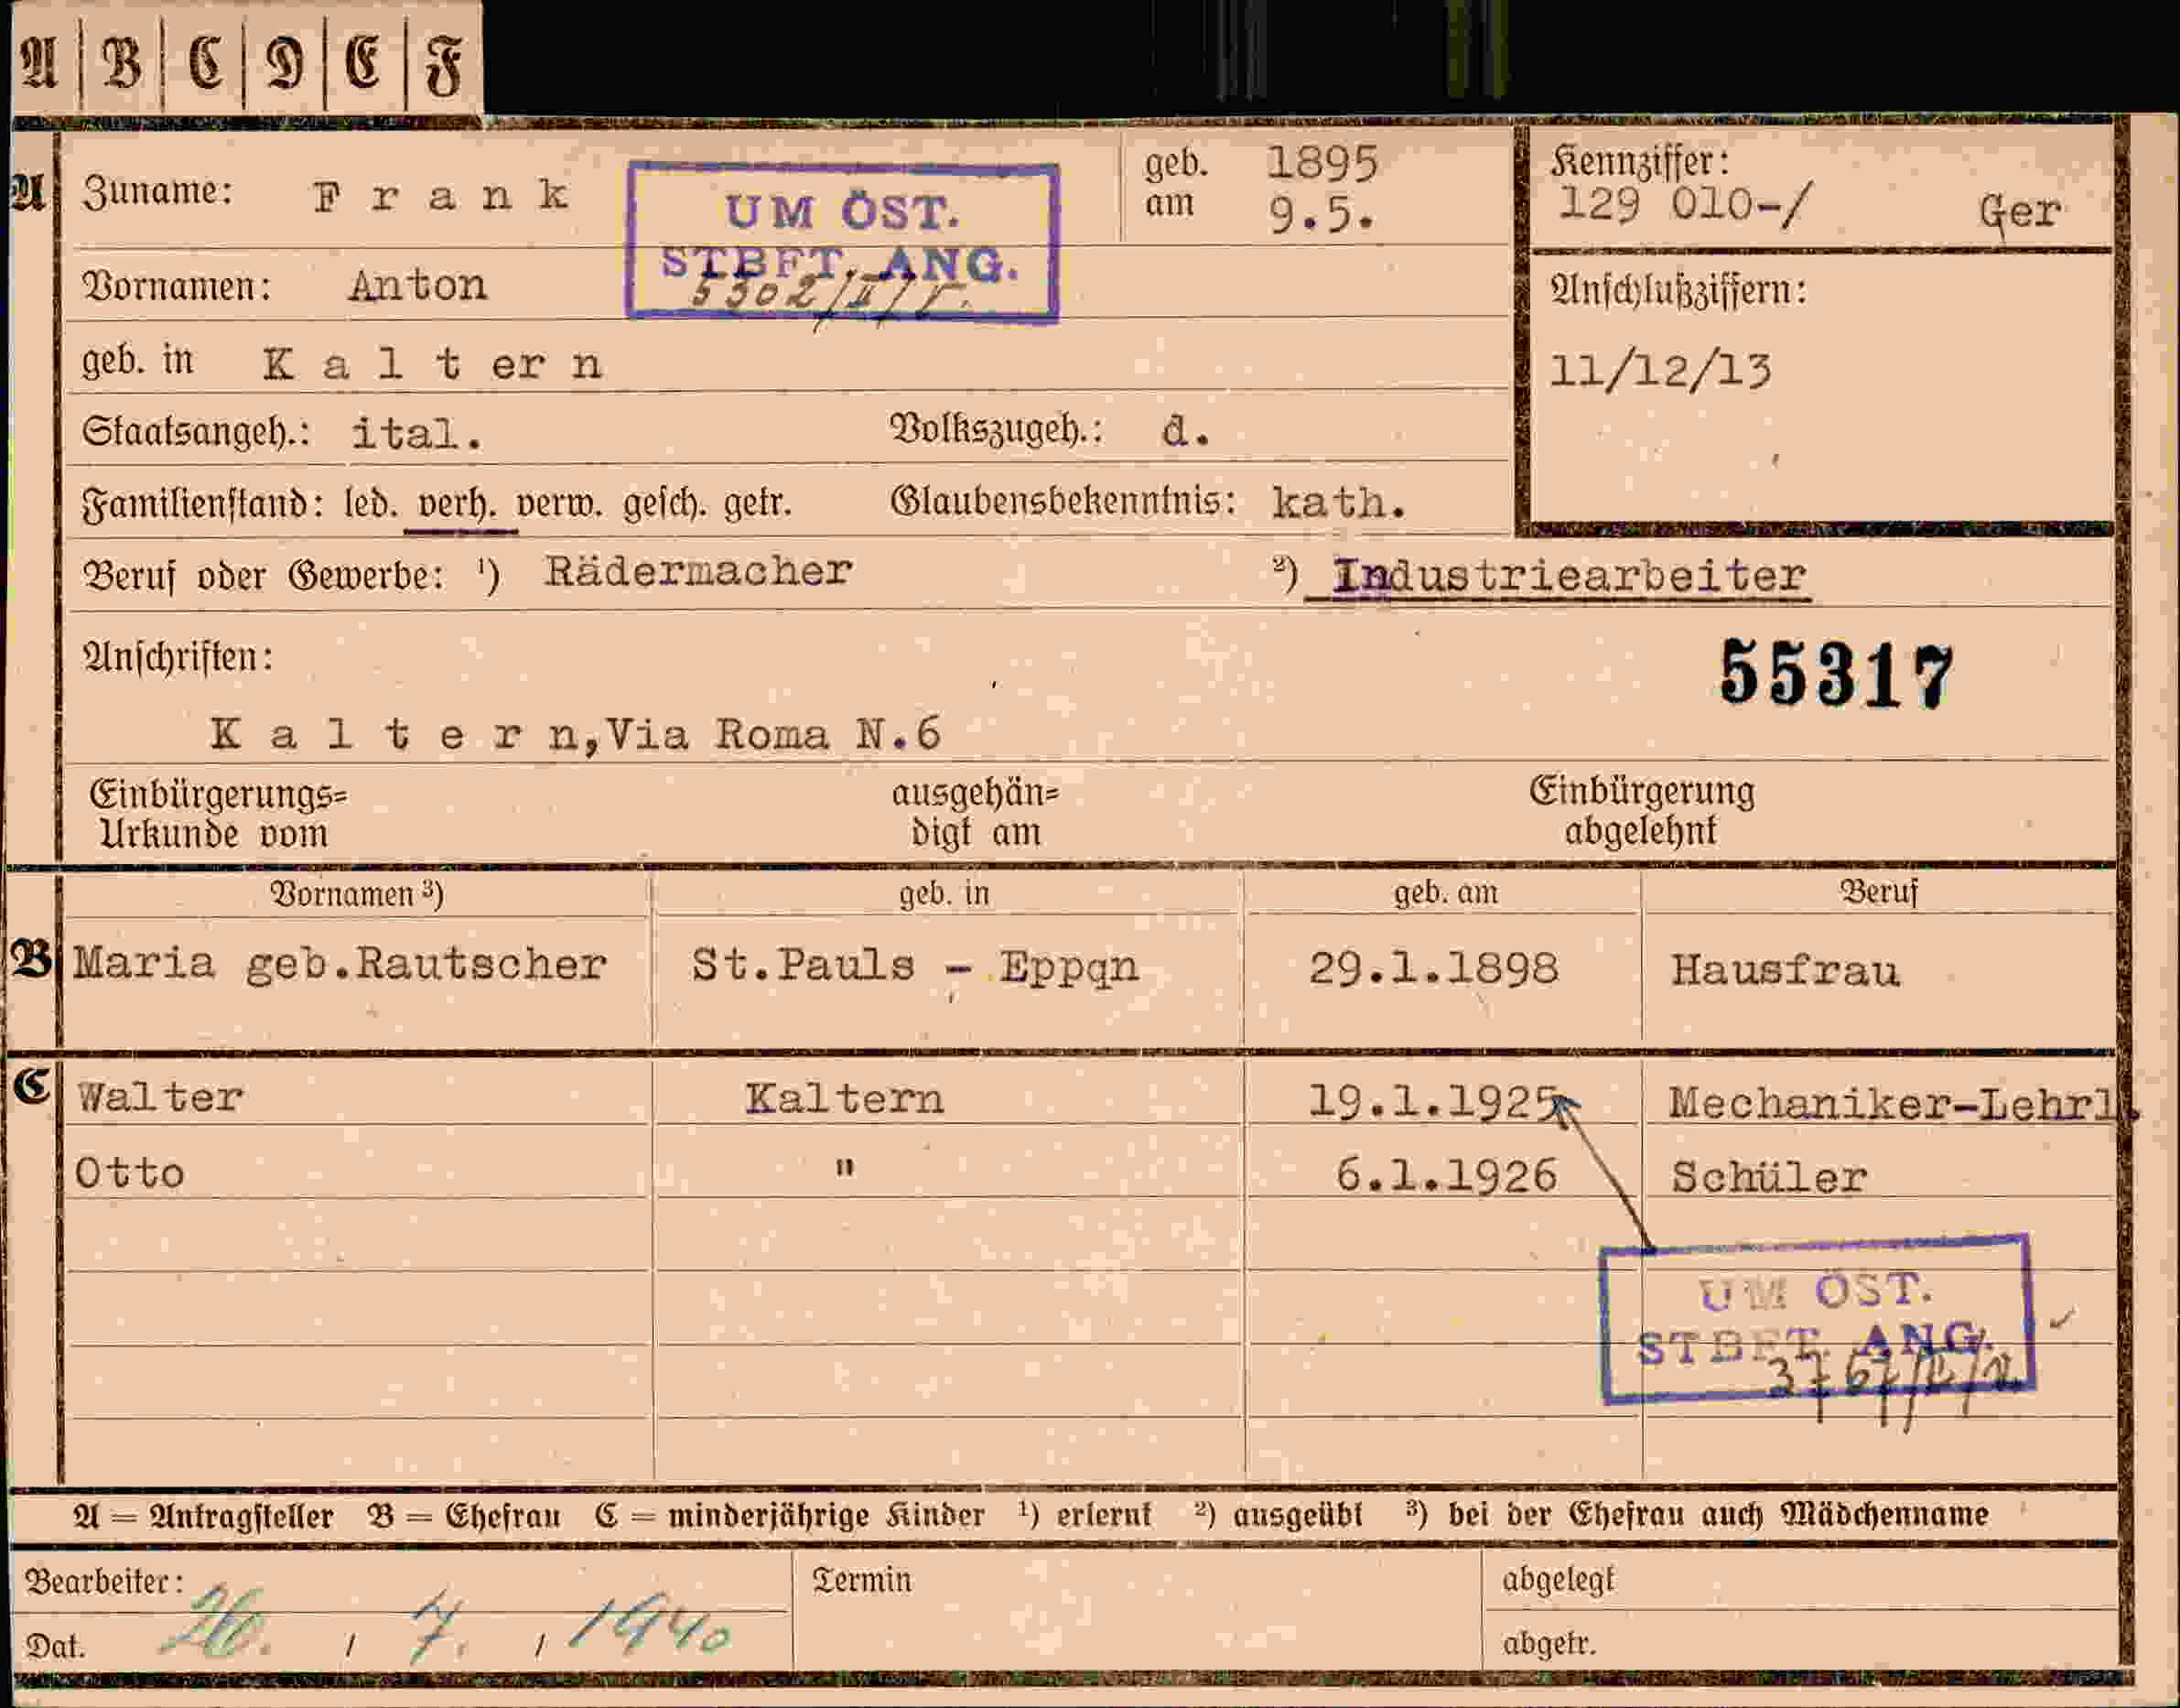 A B C D E F
A Zuname: F r a n k
UM ÖST.
STBFT. ANG.
geb. am 1895
9.5.
Kennziffer:
129 010-/ Ger
Vornamen: Anton
Anschlußziffern:
11/12/13
geb. in K a l t er n
Staatsangeh.: ital. Volkszugeh.: d.
Familienstand: led. verh. verw. gesch. getr. Glaubensbekenntnis: kath.
Beruf oder Gewerbe: ¹) Rädermacher ²) Industriearbeiter
Anschriften:
55317
K a l t e r n,Via Roma N.6
Einbürgerungs= ausgehän= Einbürgerung
Urkunde vom digt am abgelehnt
Vornamen ³) geb. in geb. am Beruf
B Maria geb.Rautscher St.Pauls - Eppqn 29.1.1898 Hausfrau
C Walter Kaltern 19.1.1925 Mechaniker-Lehrl.
Otto " 6.1.1926 Schüler
UM ÖST.
STBFT. ANG.
A = Antragsteller B = Ehefrau C = minderjährige Kinder ¹) erlernt ²) ausgeübt ³) bei der Ehefrau auch Mädchenname
Bearbeiter: Termin abgelegt
Dat. 26. / 7. / 1940 abgetr.